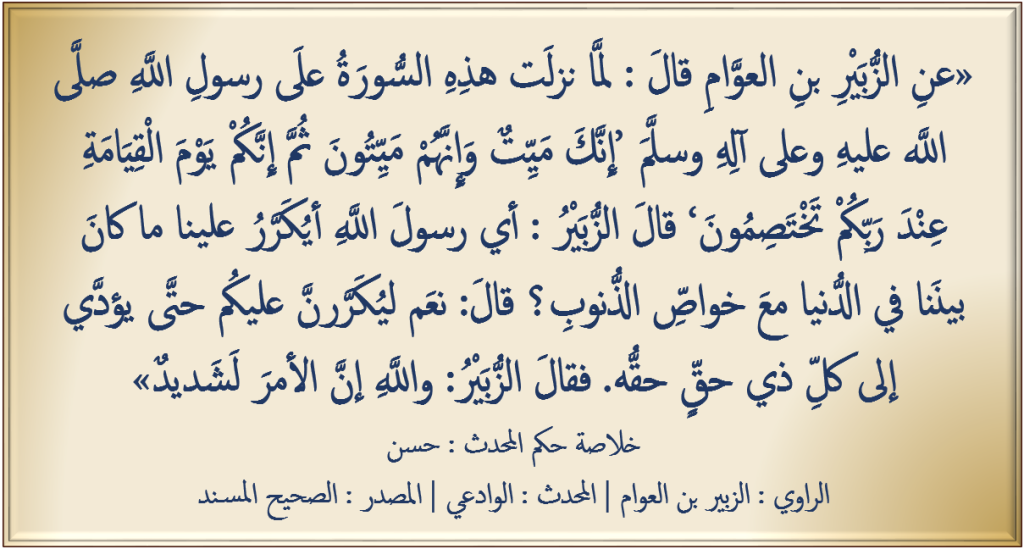 «عنِ الزُّبَيْرِ بنِ العوَّامِ قالَ : لمَّا نزلَت هذِهِ السُّورَةُ علَى رسولِ اللَّهِ صلَّى
اللَّه عليهِ وعلى آلِهِ وسلَّمَ ’إِنَّكَ مَيِّتٌ وَإِنَّهُمْ مَيِّتُونَ ثُمَّ إِنَّكُمْ يَوْمَ الْقِيَامَةِ
عِنْدَ رَبِّكُمْ تَخْتَصِمُونَ‘ قالَ الزُّبَيْرُ : أي رسولَ اللَّهِ أيُكَرَّرُ علينا ما كانَ
بينَنا في الدُّنيا معَ خواصِّ الذُّنوبِ؟ قالَ: نعَم ليُكَرَّرنَّ عليكُم حتَّى يؤدَّي
إلى كلِّ ذي حقٍّ حقُّه. فقالَ الزُّبَيْرُ: واللَّهِ إنَّ الأمرَ لَشَديدٌ»
خلاصة حكم المحدث : حسن
الراوي : الزبير بن العوام | المحدث : الوادعي | المصدر : الصحيح المسند